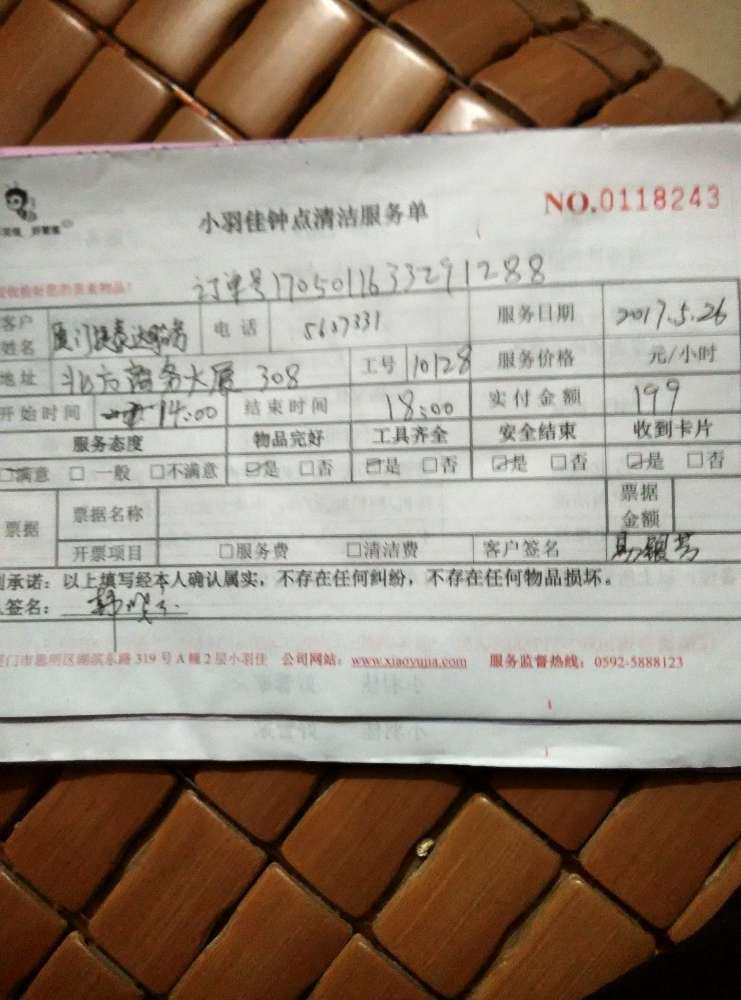 小羽佳钟点清洁服务单
NO.0118243
订单号1705011633291288
客户姓名 电话 5637331 服务日期 2017.5.26
地址 北方商务大厦 308 工号 10128 服务价格 元/小时
开始时间 14:00 结束时间 18:00 实付金额 199
服务态度 物品完好 工具齐全 安全结束 收到卡片
□满意 □一般 □不满意 ☑是 □否 ☑是 □否 ☑是 □否 ☑是 □否
票据 票据名称 票据金额
开票项目 □服务费 □清洁费 客户签名
承诺：以上填写经本人确认属实，不存在任何纠纷，不存在任何物品损坏。
签名：
门市思明区湖滨东路 319 号 A 幢 2 层小羽佳 公司网站：www.xiaoyujia.com 服务监督热线：0592-5888123